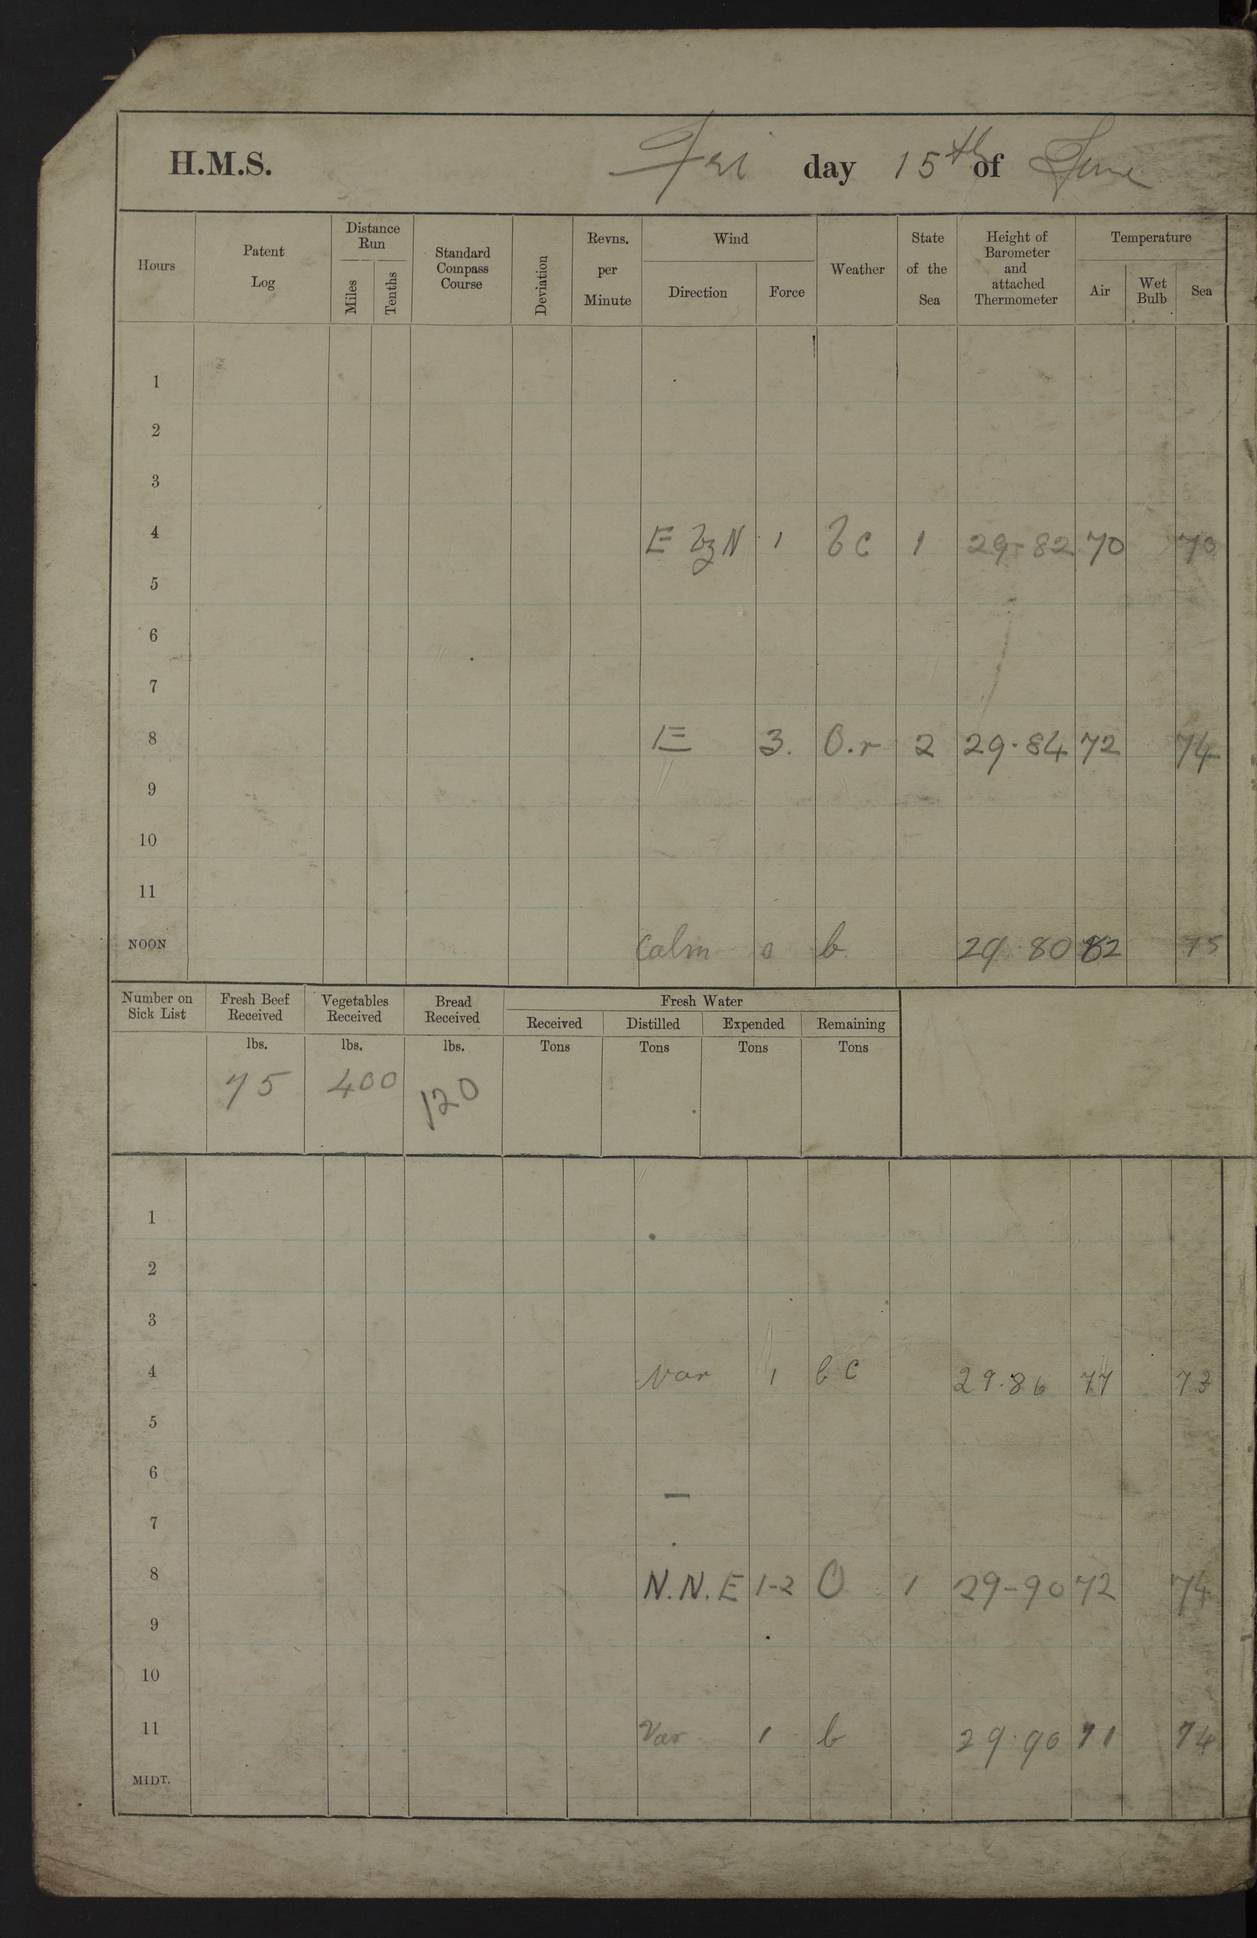 H.M.S. Fri day 15th of June
Hours Patent Log Distance Run Miles Tenths Standard Compass Course Deviation Revns. per Minute Wind Direction Force Weather State of the Sea Height of Barometer and attached Thermometer Temperature Air Wet Bulb Sea
1
2
3
4 E by N 1 b c 1 29-82 70 70
5
6
7
8 E 3. O.r 2 29.84 72 74
9
10
11
NOON Calm 0 b 29.80 82 75
Number on Sick List Fresh Beef Received Vegetables Received Bread Received Fresh Water
Received Distilled Expended Remaining
lbs. lbs. lbs. Tons Tons Tons Tons
75 400 120
1
2
3
4 Var 1 b c 29.86 77 73
5
6
7
8 N.N.E 1-2 O 1 29-90 72 74
9
10
11 Var 1 b 29.90 71 74
MIDT.